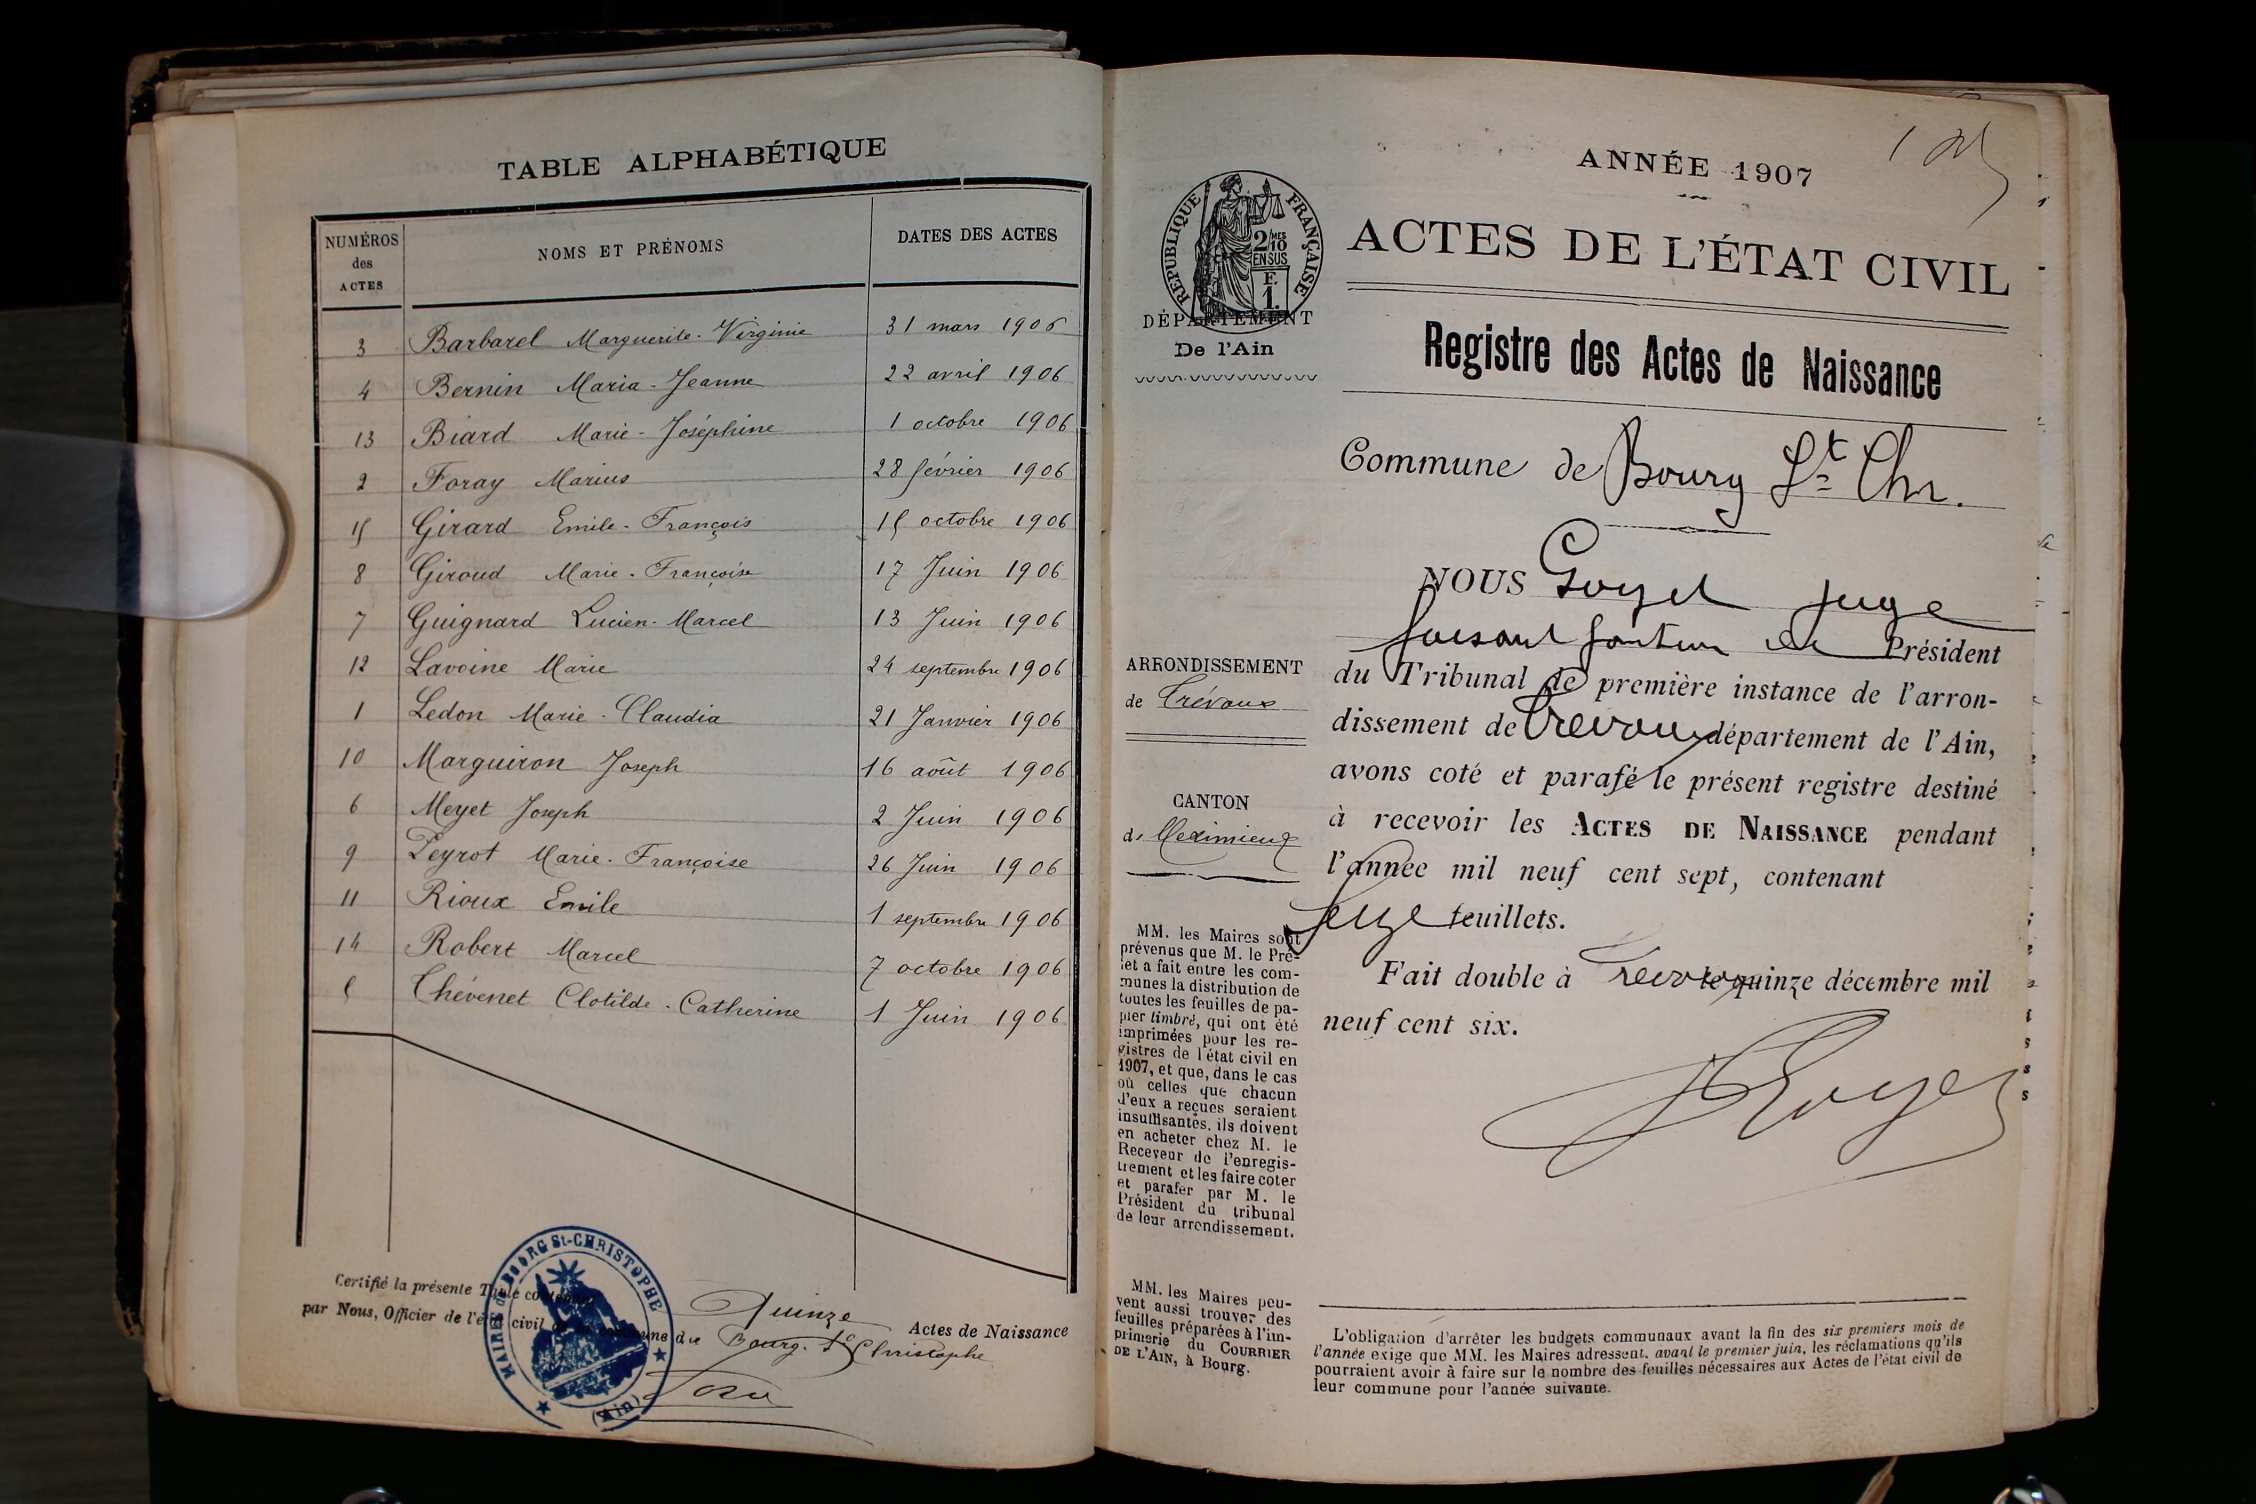 TABLE ALPHABÉTIQUE
NUMÉROS des ACTES NOMS ET PRÉNOMS DATES DES ACTES
3 Barbarel Marguerite-Virginie 31 mars 1906
4 Bernin Maria-Jeanne 22 avril 1906
13 Biard Marie-Joséphine 1 octobre 1906
2 Foray Marius 28 février 1906
15 Girard Emile-François 15 octobre 1906
8 Giroud Marie-Françoise 17 Juin 1906
7 Guignard Lucien-Marcel 13 Juin 1906
12 Lavoine Marie 24 septembre 1906
1 Ledon Marie-Claudia 21 Janvier 1906
10 Marguiron Joseph 16 août 1906
6 Meyet Joseph 2 Juin 1906
9 Peyrot Marie-Françoise 26 Juin 1906
11 Rioux Emile 1 septembre 1906
14 Robert Marcel 7 octobre 1906
5 Thévenet Clotilde-Catherine 1 Juin 1906
Certifié la présente Table Quinze Actes de Naissance
par Nous, Officier de l'état civil de Bourg-St Christophe
MAIRIE de BOURG St-CHRISTOPHE
(Ain)
ANNÉE 1907
RÉPUBLIQUE FRANÇAISE
2/MES 10
EN SUS
F.
1.
ACTES DE L'ÉTAT CIVIL
DÉPARTEMENT
De l'Ain
Registre des Actes de Naissance
Commune de Bourg St Chr.
NOUS Goyet juge
faisant fonction de Président
ARRONDISSEMENT
de Trévoux
du Tribunal de première instance de l'arron-
dissement de Trévoux département de l'Ain,
avons coté et parafé le présent registre destiné
CANTON
de Meximieux
à recevoir les ACTES DE NAISSANCE pendant
l'année mil neuf cent sept, contenant
seize feuillets.
Fait double à Trévoux le quinze décembre mil
neuf cent six.
Goyet
MM. les Maires sont
prévenus que M. le Pré-
fet a fait entre les com-
munes la distribution de
toutes les feuilles de pa-
pier timbré, qui ont été
imprimées pour les re-
gistres de l'état civil en
1907, et que, dans le cas
où celles que chacun
d'eux a reçues seraient
insuffisantes, ils doivent
en acheter chez M. le
Receveur de l'enregis-
trement et les faire coter
et parafer par M. le
Président du tribunal
de leur arrondissement.
MM. les Maires peu-
vent aussi trouver des
feuilles préparées à l'im-
primerie du COURRIER
DE L'AIN, à Bourg.
L'obligation d'arrêter les budgets communaux avant la fin des six premiers mois de
l'année exige que MM. les Maires adressent, avant le premier juin, les réclamations qu'ils
pourraient avoir à faire sur le nombre des feuilles nécessaires aux Actes de l'état civil de
leur commune pour l'année suivante.